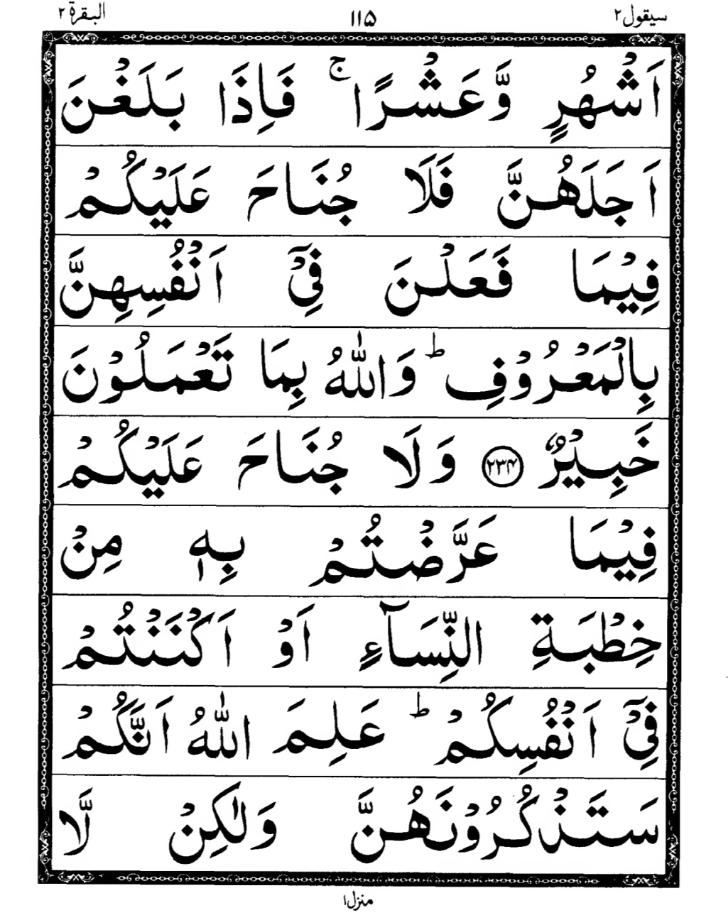 سيقول ٢ ١١۵ البقرة ٢
اَشْهُرٍ وَّعَشْرًا ۚ فَاِذَا بَلَغْنَ
اَجَلَهُنَّ فَلَا جُنَاحَ عَلَيْكُمْ
فِيْمَا فَعَلْنَ فِيْۤ اَنْفُسِهِنَّ
بِالْمَعْرُوْفِ ؕ وَاللّٰهُ بِمَا تَعْمَلُوْنَ
خَبِيْرٌ ﴿۲۳۴﴾ وَلَا جُنَاحَ عَلَيْكُمْ
فِيْمَا عَرَّضْتُمْ بِهٖ مِنْ
خِطْبَةِ النِّسَآءِ اَوْ اَكْنَنْتُمْ
فِيْۤ اَنْفُسِكُمْ ؕ عَلِمَ اللّٰهُ اَنَّكُمْ
سَتَذْكُرُوْنَهُنَّ وَلٰكِنْ لَّا
منزل ١